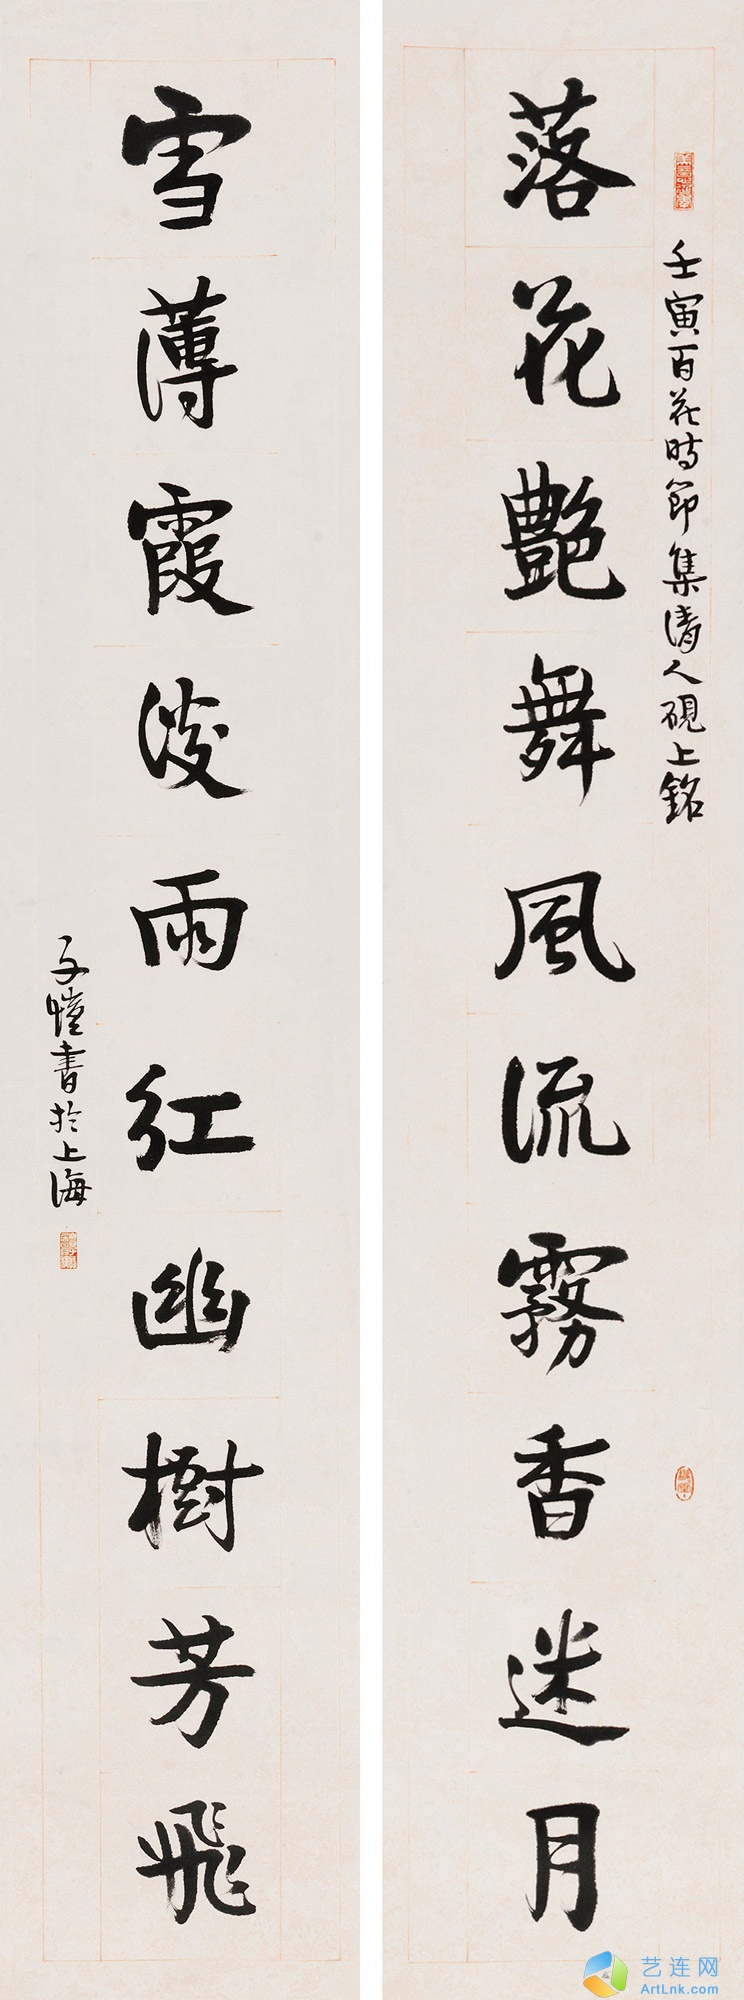 壬寅百花時節集清人硯上銘
落花艷舞風流霧香迷月
雪薄霞淡雨紅幽樹芳飛
子愷書於上海
艺连网
ArtLnk.com